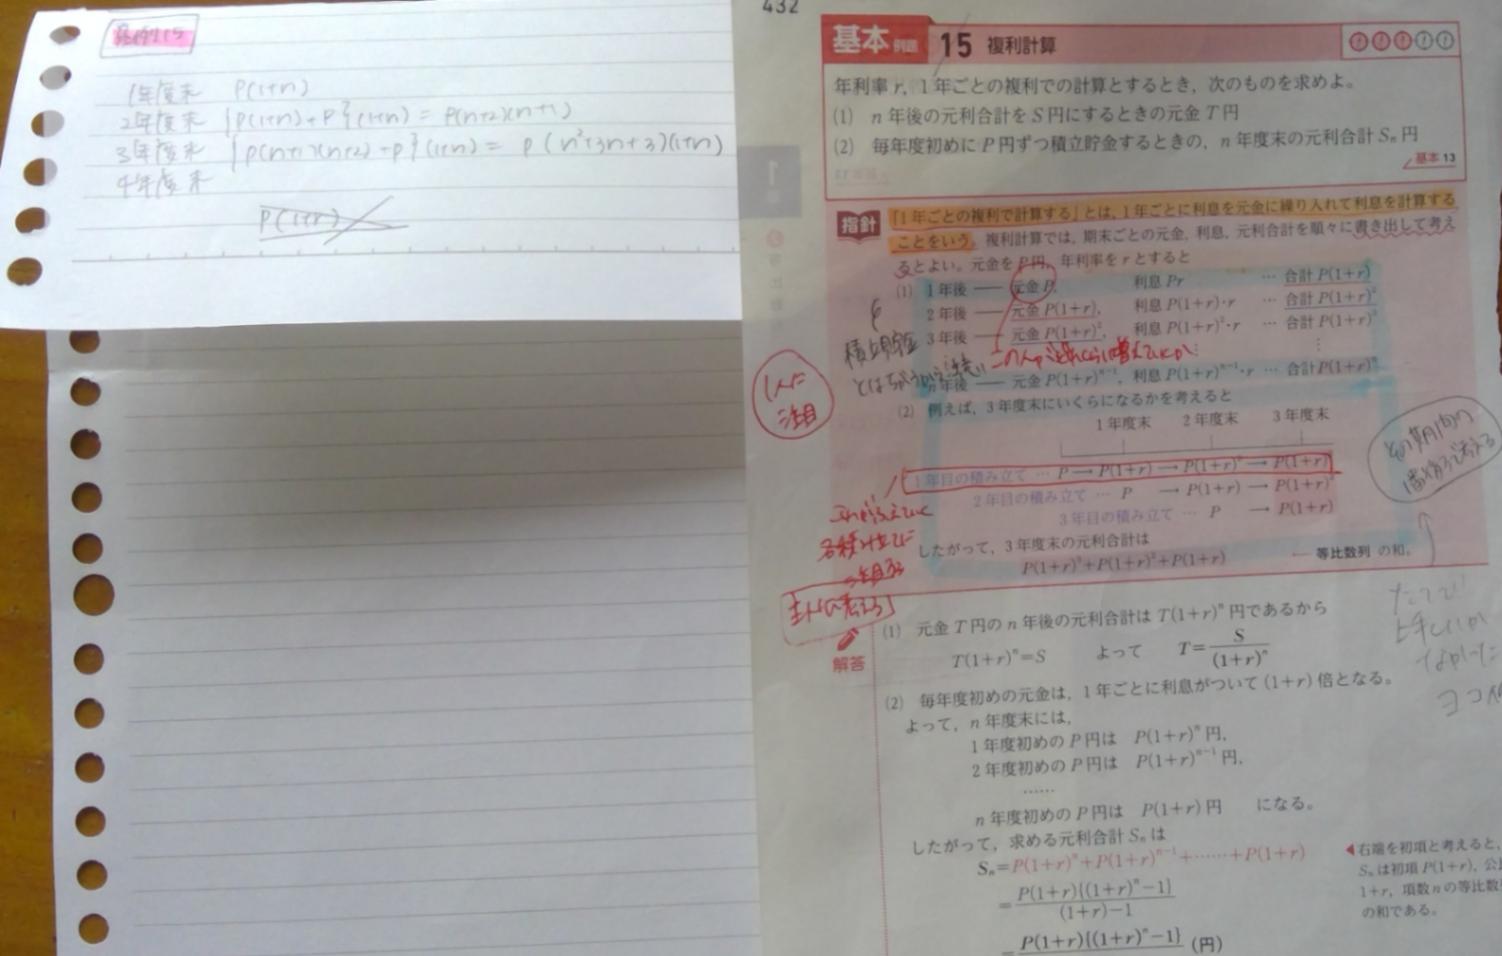 基本例題15
1年度末 P(1+n)
2年度末 {P(1+n)+P}(1+n) = P(n+2)(n+1)
3年度末 {P(n+1)(n+2)+P}(1+n) = P(n²+3n+3)(1+n)
4年度末
P(1+r)
432
基本 例題 15 複利計算
年利率 r, 1年ごとの複利での計算とするとき,次のものを求めよ。
(1) n年後の元利合計をS円にするときの元金T円
(2) 毎年度初めにP円ずつ積立貯金するときの,n年度末の元利合計 Sₙ円
基本 13
指針
「1年ごとの複利で計算する」とは,1年ごとに利息を元金に繰り入れて利息を計算する
ことをいう。複利計算では,期末ごとの元金,利息,元利合計を順々に書き出して考え
るとよい。元金をP円,年利率をrとすると
(1) 1年後 — 元金P, 利息 Pr … 合計 P(1+r)
2年後 — 元金P(1+r), 利息 P(1+r)・r … 合計 P(1+r)²
3年後 — 元金P(1+r)², 利息 P(1+r)²・r … 合計 P(1+r)³
積立貯金
とはちがうから注意
n年後 — 元金P(1+r)ⁿ⁻¹, 利息 P(1+r)ⁿ⁻¹・r … 合計 P(1+r)ⁿ
1人に
注目
(2) 例えば,3年度末にいくらになるかを考えると
1年度末 2年度末 3年度末
1年目の積み立て … P → P(1+r) → P(1+r)² → P(1+r)³
2年目の積み立て … P → P(1+r) → P(1+r)²
3年目の積み立て … P → P(1+r)
したがって,3年度末の元利合計は
P(1+r)³+P(1+r)²+P(1+r) ← 等比数列 の和。
解答
(1) 元金T円のn年後の元利合計は T(1+r)ⁿ円であるから
T(1+r)ⁿ=S よって T=S/(1+r)ⁿ
(2) 毎年度初めの元金は,1年ごとに利息がついて (1+r) 倍となる。
よって,n年度末には,
1年度初めのP円は P(1+r)ⁿ円,
2年度初めのP円は P(1+r)ⁿ⁻¹円,
……
n年度初めのP円は P(1+r)円 になる。
したがって,求める元利合計 Sₙ は
Sₙ=P(1+r)ⁿ+P(1+r)ⁿ⁻¹+……+P(1+r)
=P(1+r){(1+r)ⁿ-1}/(1+r)-1
=P(1+r){(1+r)ⁿ-1} (円)
◀右端を初項と考えると,
Sₙは初項P(1+r),公
1+r, 項数nの等比数
の和である。